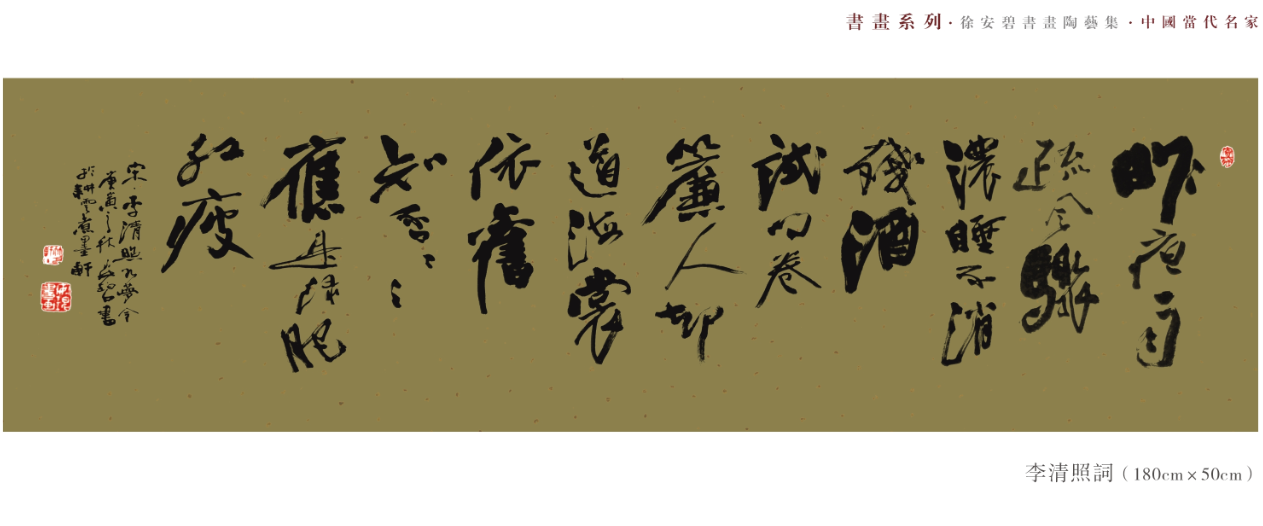 書畫系列·徐安碧書畫陶藝集·中國當代名家
昨夜雨
疏風驟
濃睡不消
殘酒
試問卷
簾人却
道海棠
依舊
知否々々
應是綠肥
紅瘦
宋·李清照如夢令
庚寅之秋安碧書
於耕雲煮墨軒
李清照詞（180cm×50cm）